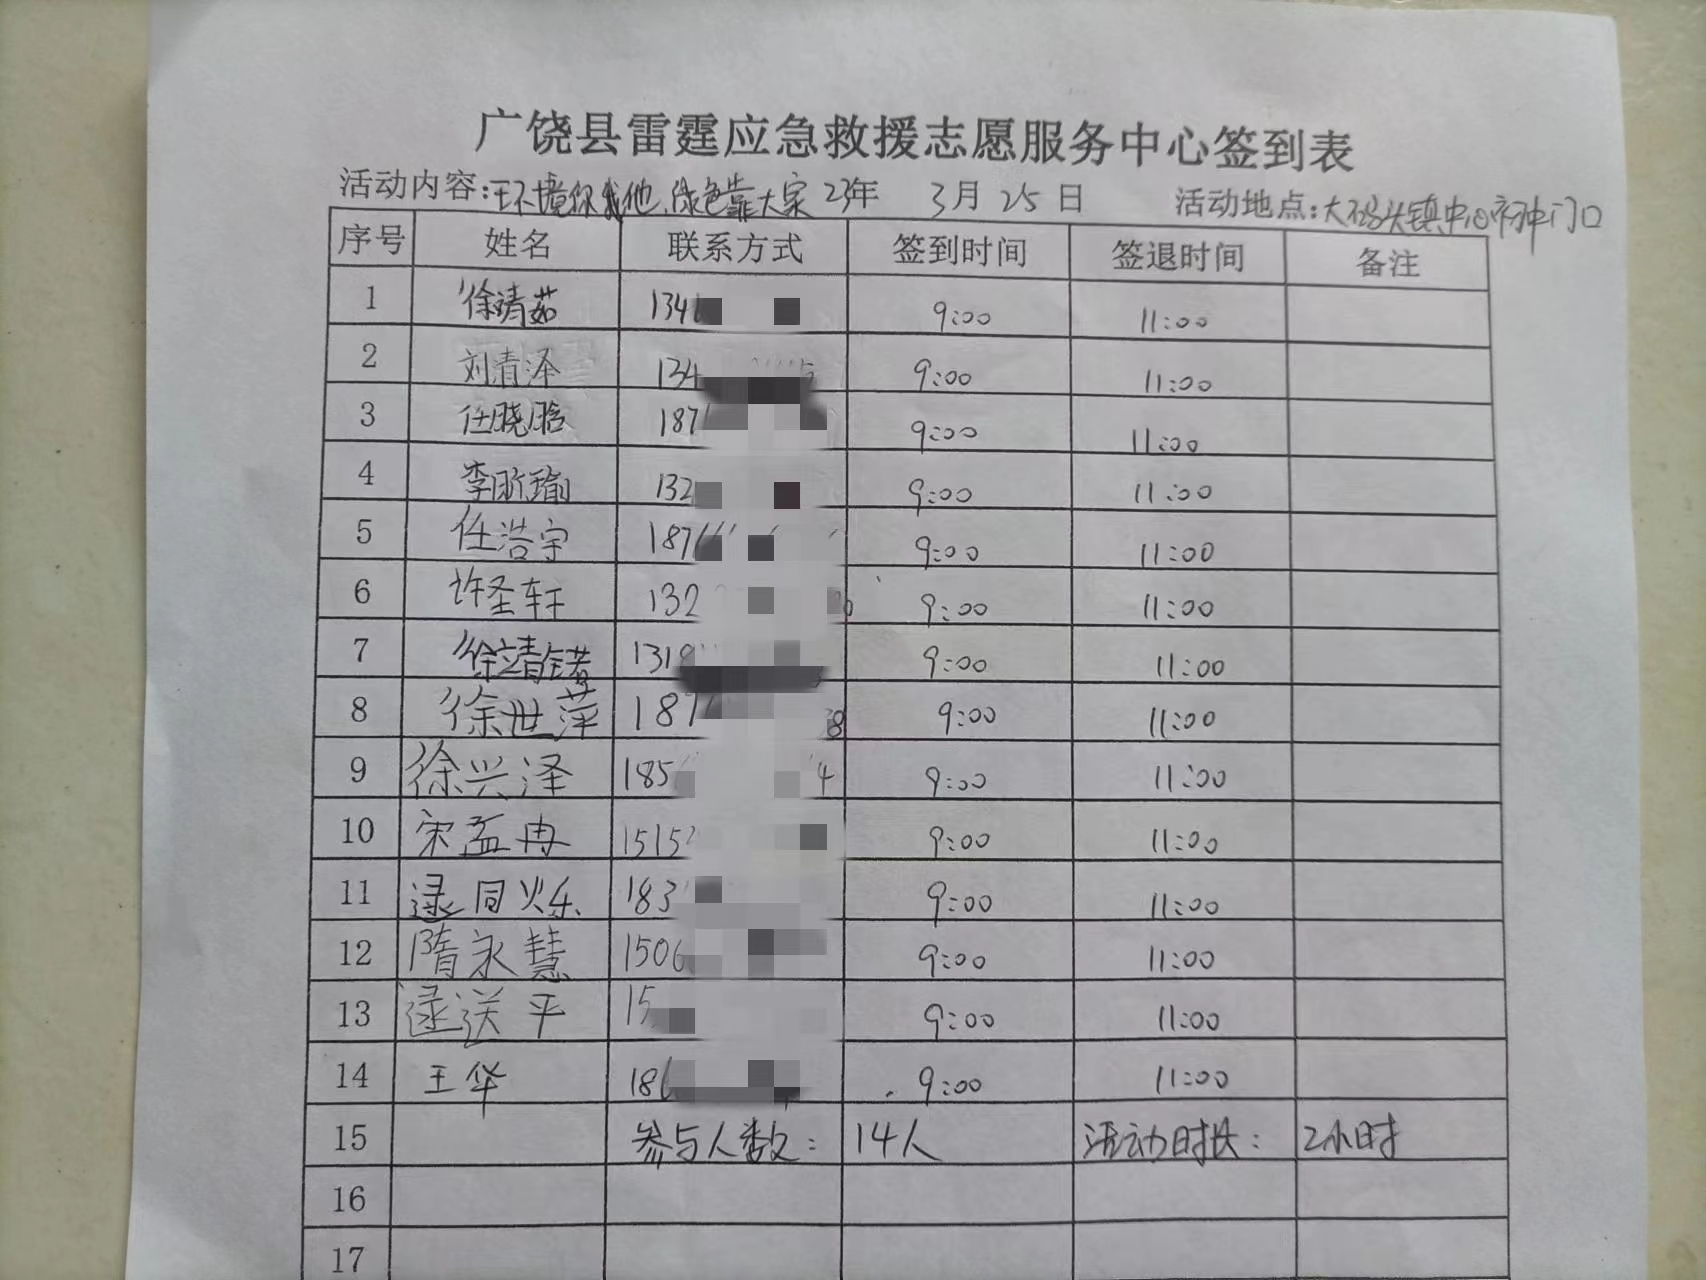 广饶县雷霆应急救援志愿服务中心签到表
活动内容:环境你我他,绿色靠大家 23年 3月 25日 活动地点:大码头镇中心初中门口
序号 姓名 联系方式 签到时间 签退时间 备注
1 徐靖茹 134 9:00 11:00
2 刘清泽 134 9:00 11:00
3 任晓晗 187 9:00 11:00
4 李昕瑜 132 9:00 11:00
5 任浩宇 187 9:00 11:00
6 许圣轩 132 9:00 11:00
7 徐靖锘 131 9:00 11:00
8 徐世萍 187 8 9:00 11:00
9 徐兴泽 185 4 9:00 11:00
10 宋孟冉 1515 9:00 11:00
11 逯同烁 183 9:00 11:00
12 隋永慧 150 9:00 11:00
13 逯送平 15 9:00 11:00
14 王华 18 9:00 11:00
15 参与人数: 14人 活动时长: 2小时
16
17